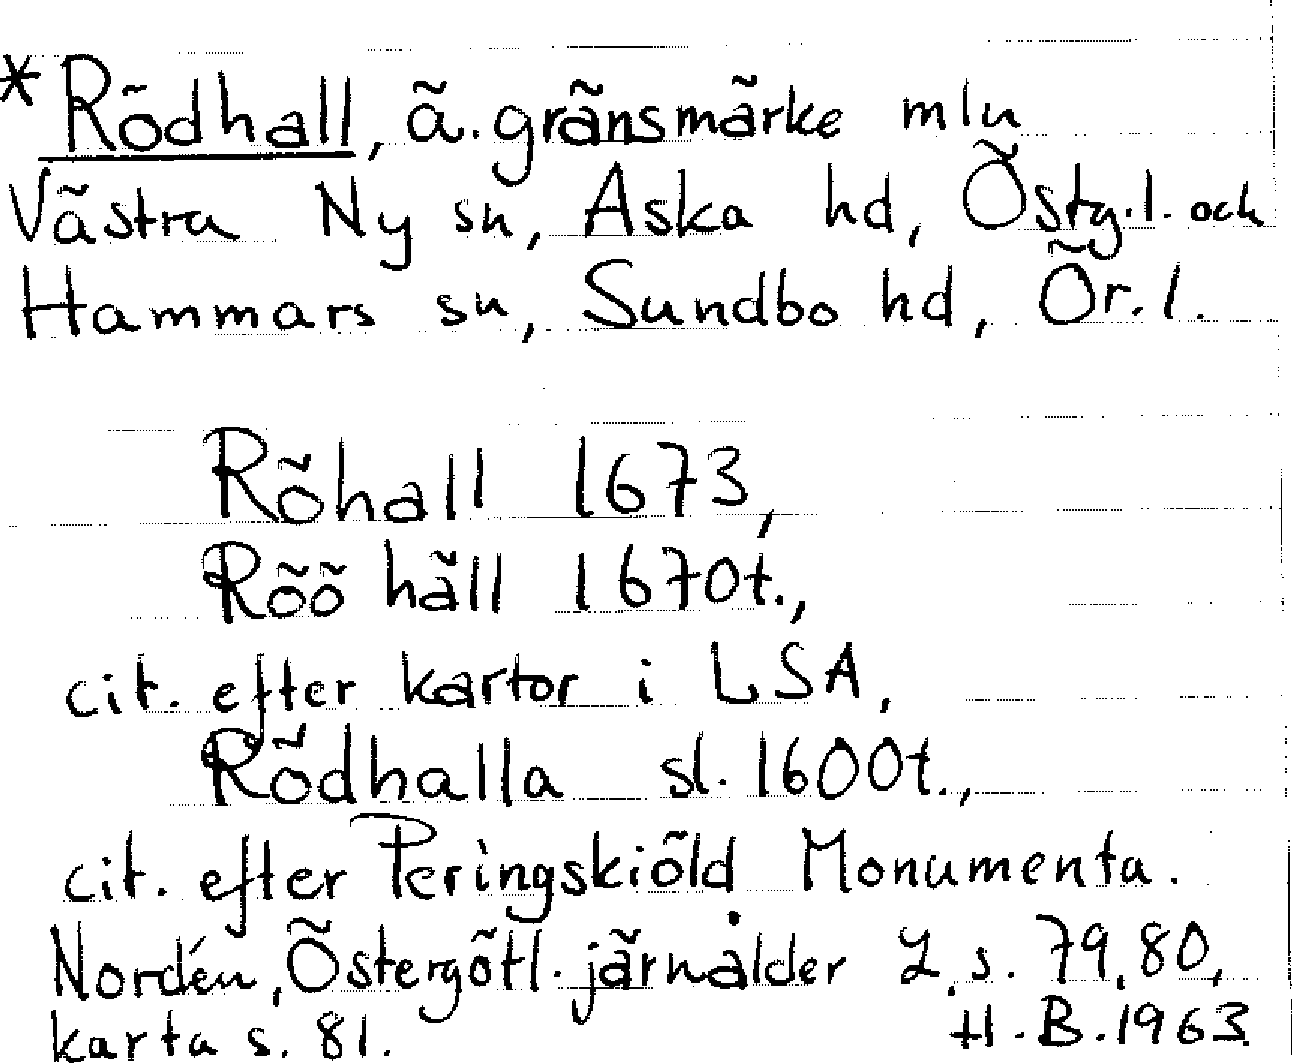 *Rödhall, ä. gränsmärke mln
Västra Ny sn, Aska hd, Östg. l. och
Hammars sn, Sundbo hd, Ör. l.
Röhall 1673,
Röö häll 1670t.,
cit. efter kartor i LSA,
Rödhalla sl. 1600t.,
cit. efter Peringskiöld Monumenta.
Nordén, Östergötl. järnålder 2, s. 79, 80,
karta s. 81. H. B. 1963